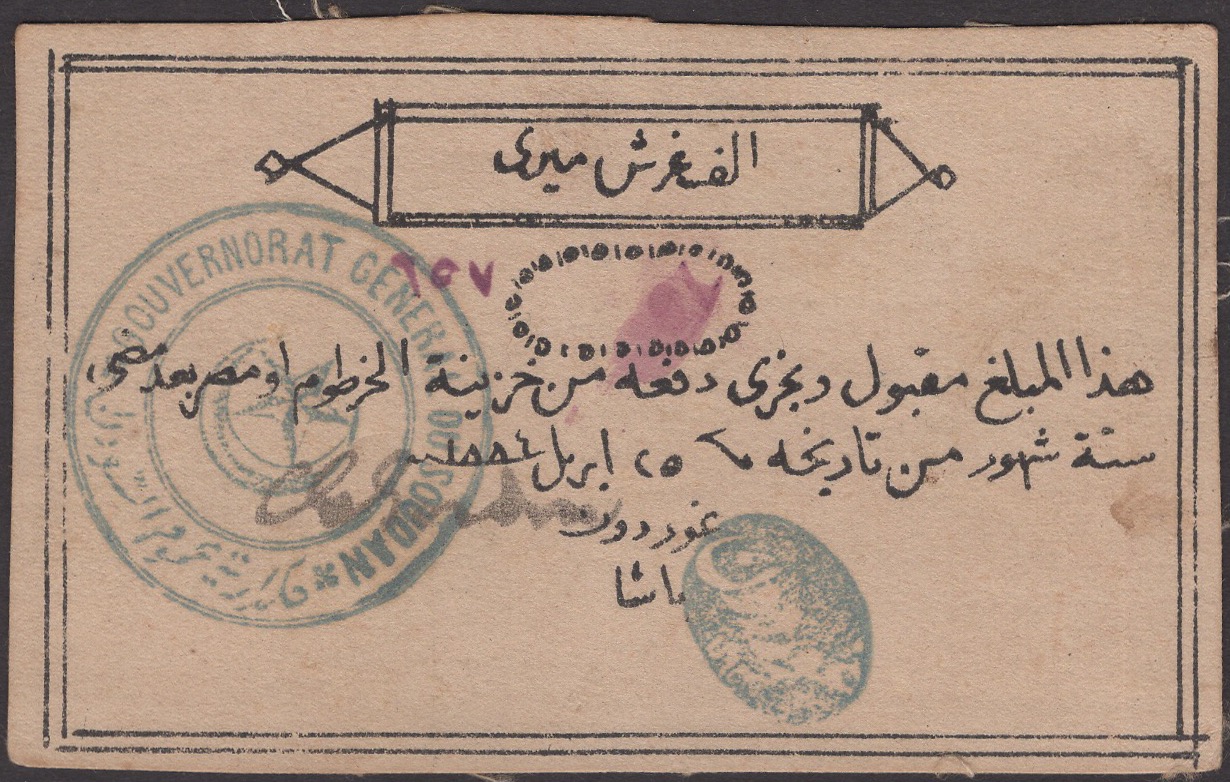 الف غرش ميرى
٦٥٧
هذا المبلغ مقبول ويجرى دفعه من خزينة الخرطوم او مصر بعد مضى
ستة شهور من تاريخه ٢٥ ابريل ١٨٨٤
غوردون
باشا
GOUVERNORAT GENERAL DU SOUDAN
عموم السودان